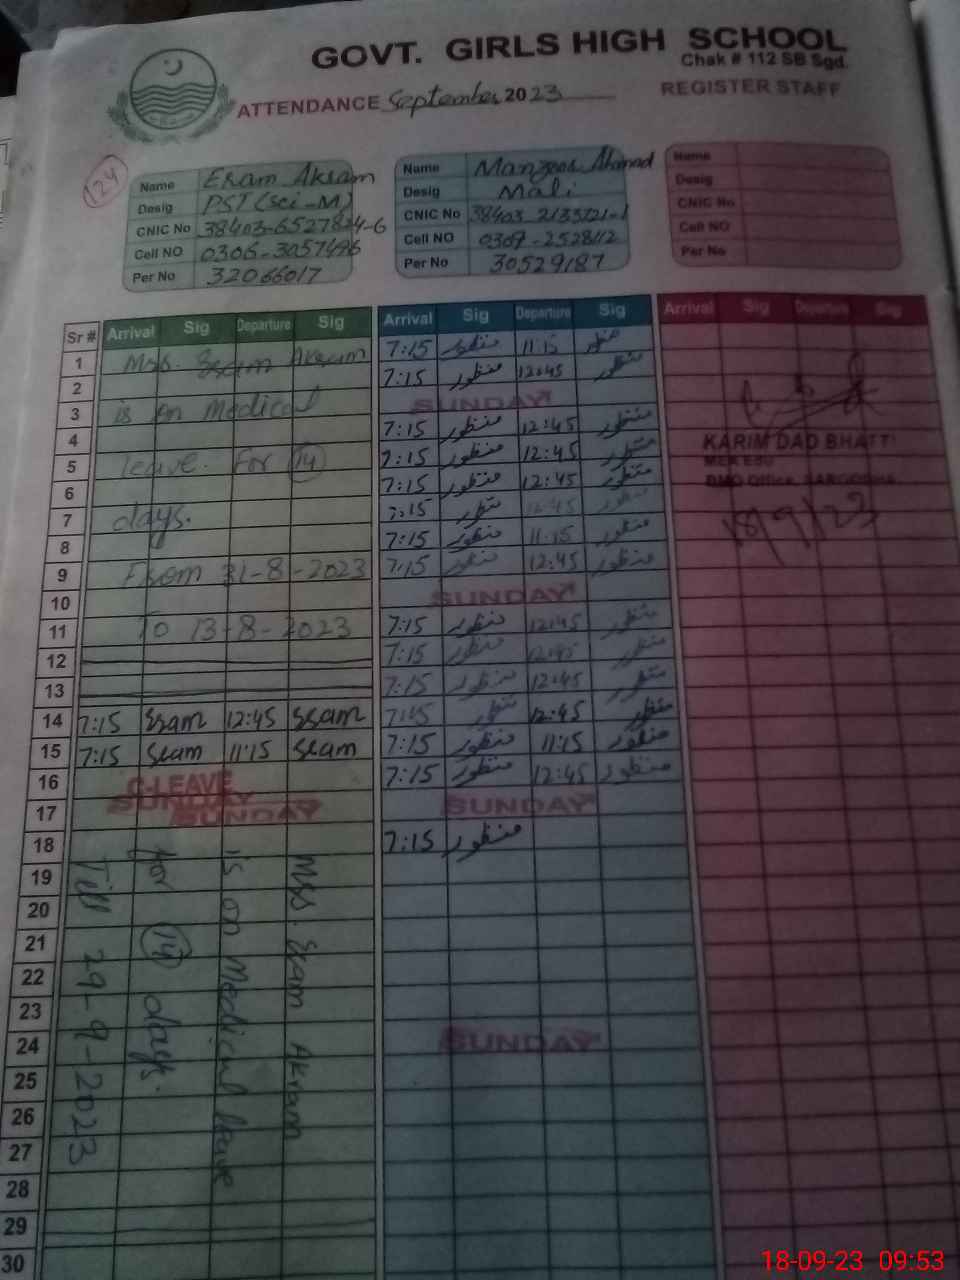 GOVT. GIRLS HIGH SCHOOL
Chak # 112 SB Sgd.
ATTENDANCE September 2023 REGISTER STAFF
124
Name Eram Akram
Desig PST (Sci-M)
CNIC No 38403-6527824-6
Cell NO 0306-3057496
Per No 32066017
Name Manzoor Ahmad
Desig Mali
CNIC No 38403
Cell NO 0307-2528112
Per No 30529187
Name
Desig
CNIC No
Cell NO
Per No
Sr # Arrival Sig Departure Sig Arrival Sig Departure Sig Arrival Sig Departure Sig
1 7:15 منظور 11:15 منظور
2 7:15 منظور 12:45 منظور
3 SUNDAY
4 7:15 منظور 12:45 منظور
5 7:15 منظور 12:45 منظور
6 7:15 منظور 12:45 منظور
7 7:15 منظور 12:45 منظور
8 7:15 منظور 11:15 منظور
9 7:15 منظور 12:45 منظور
10 SUNDAY
11 7:15 منظور 12:45 منظور
12 7:15 منظور 12:45 منظور
13 7:15 منظور 12:45 منظور
14 7:15 Eram 12:45 Eram 7:15 منظور 12:45 منظور
15 7:15 Eram 11:15 Eram 7:15 منظور 11:15 منظور
16 C-LEAVE SUNDAY 7:15 منظور 12:45 منظور
17 SUNDAY SUNDAY
18 7:15 منظور
19
20
21
22
23
24 SUNDAY
25
26
27
28
29
30
Mss. Eram Akram
is on Medical
leave. For 14
days.
From 31-8-2023
To 13-8-2023
Mss. Eram Akram
is on Medical leave
for 14 days.
Till 29-9-2023
KARIM DAD BHATTI
MEA
DMO Office, SARGODHA
18/9/23
18-09-23 09:53